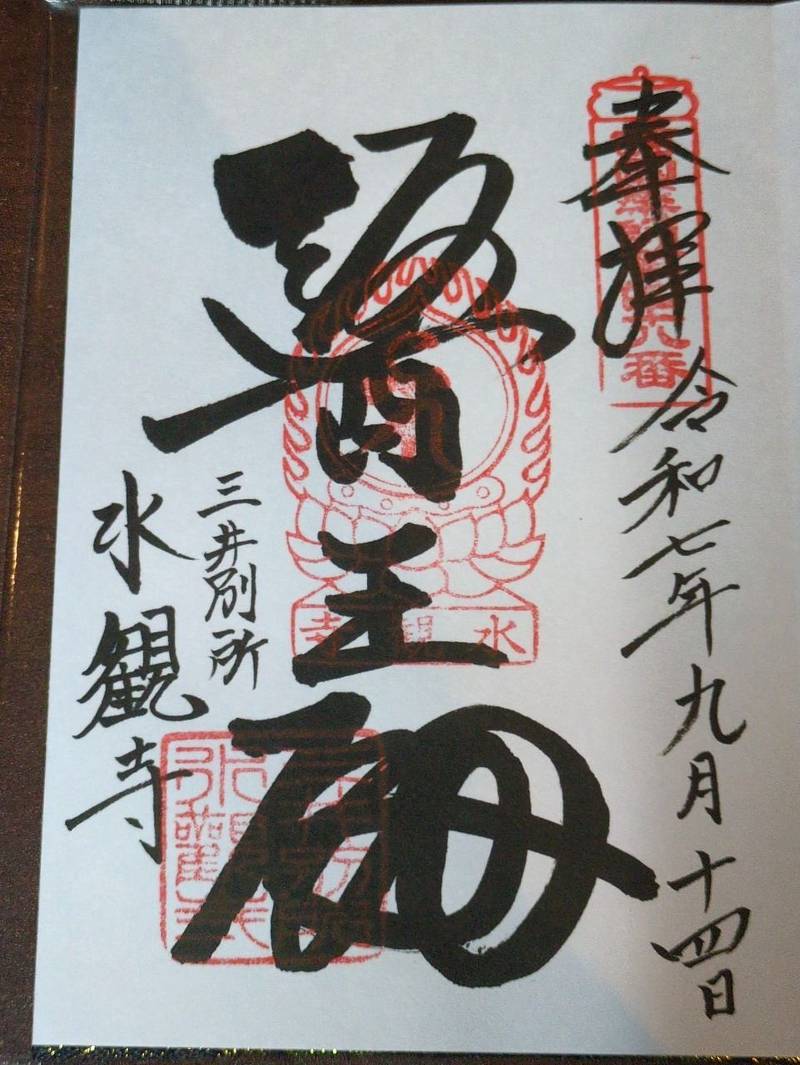 奉拝
令和七年九月十四日
醫王殿
三井別所
水観寺
水観寺